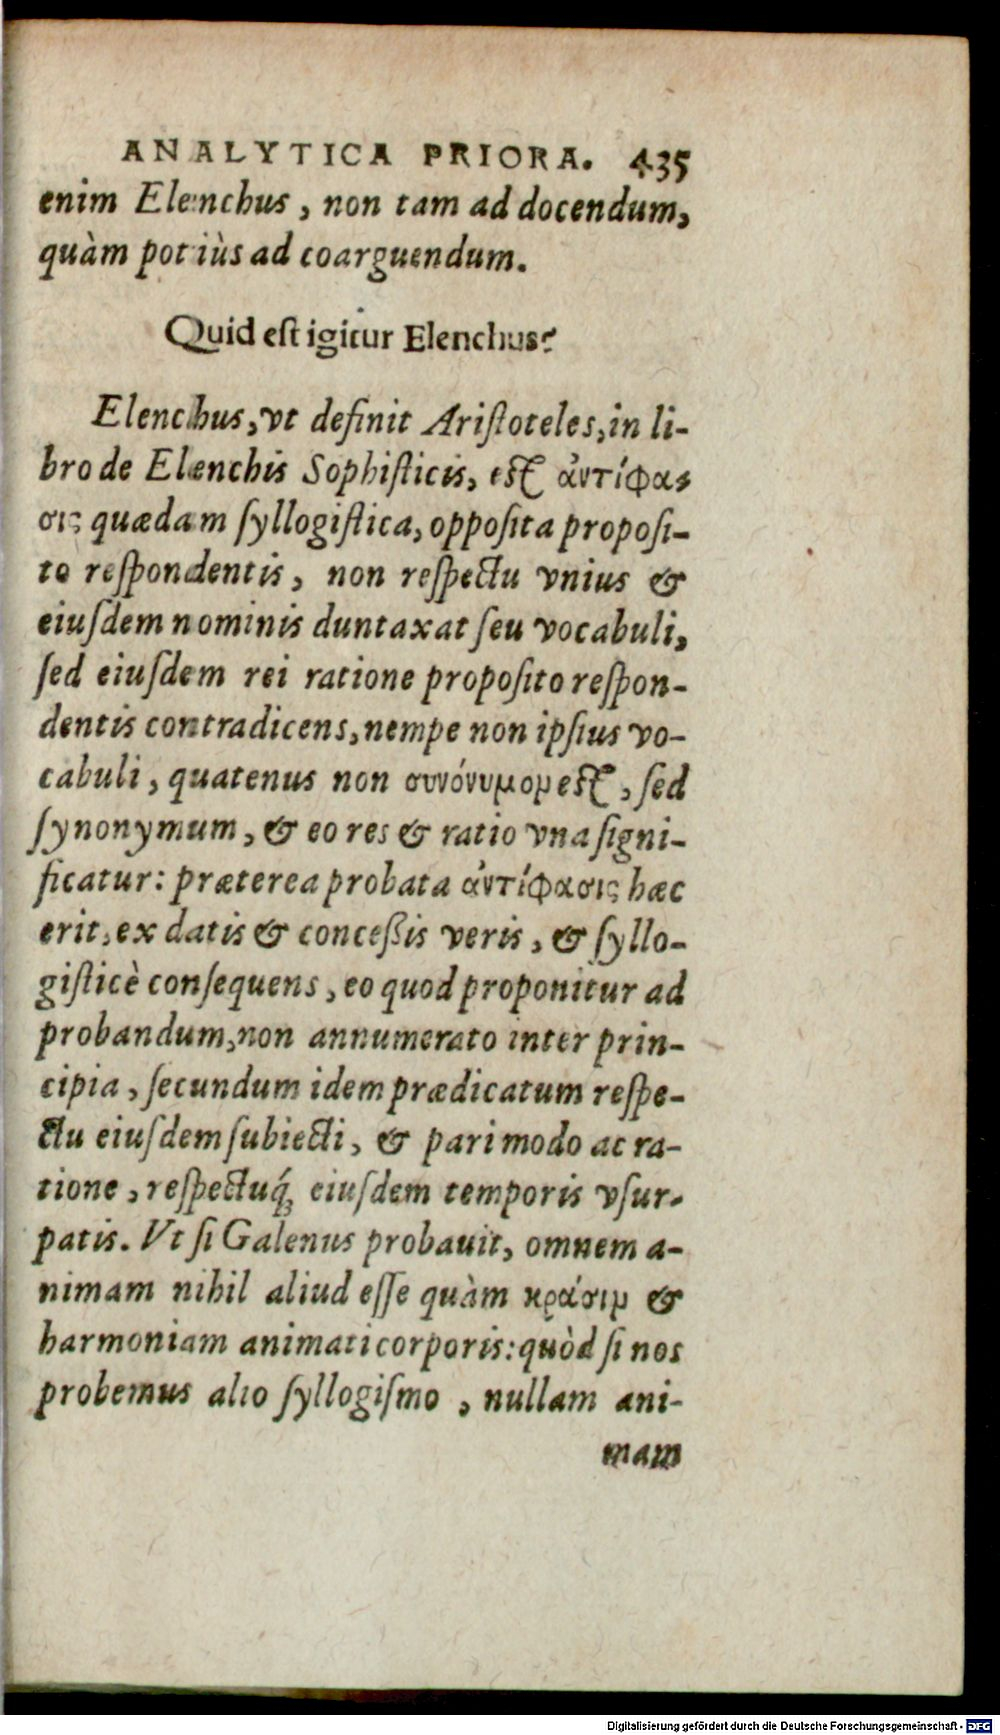 ANALYTICA PRIORA. 435
enim Elenchus, non tam ad docendum,
quàm potiùs ad coarguendum.
Quid est igitur Elenchus?
Elenchus, vt definit Aristoteles, in li-
bro de Elenchis Sophisticis, est ἀντίφα-
σις quædam syllogistica, opposita proposi-
to respondentis, non respectu vnius &
eiusdem nominis duntaxat seu vocabuli,
sed eiusdem rei ratione proposito respon-
dentis contradicens, nempe non ipsius vo-
cabuli, quatenus non συνόνυμον est, sed
synonymum, & eo res & ratio vna signi-
ficatur: præterea probata ἀντίφασις hæc
erit, ex datis & concessis veris, & syllo-
gisticè consequens, eo quod proponitur ad
probandum, non annumerato inter prin-
cipia, secundum idem prædicatum respe-
ctu eiusdem subiecti, & pari modo ac ra-
tione, respectuq́; eiusdem temporis vsur-
patis. Vt si Galenus probauit, omnem a-
nimam nihil aliud esse quàm κράσιν &
harmoniam animati corporis: quòd si nos
probemus alio syllogismo, nullam ani-
mam
Digitalisierung gefördert durch die Deutsche Forschungsgemeinschaft - DFG